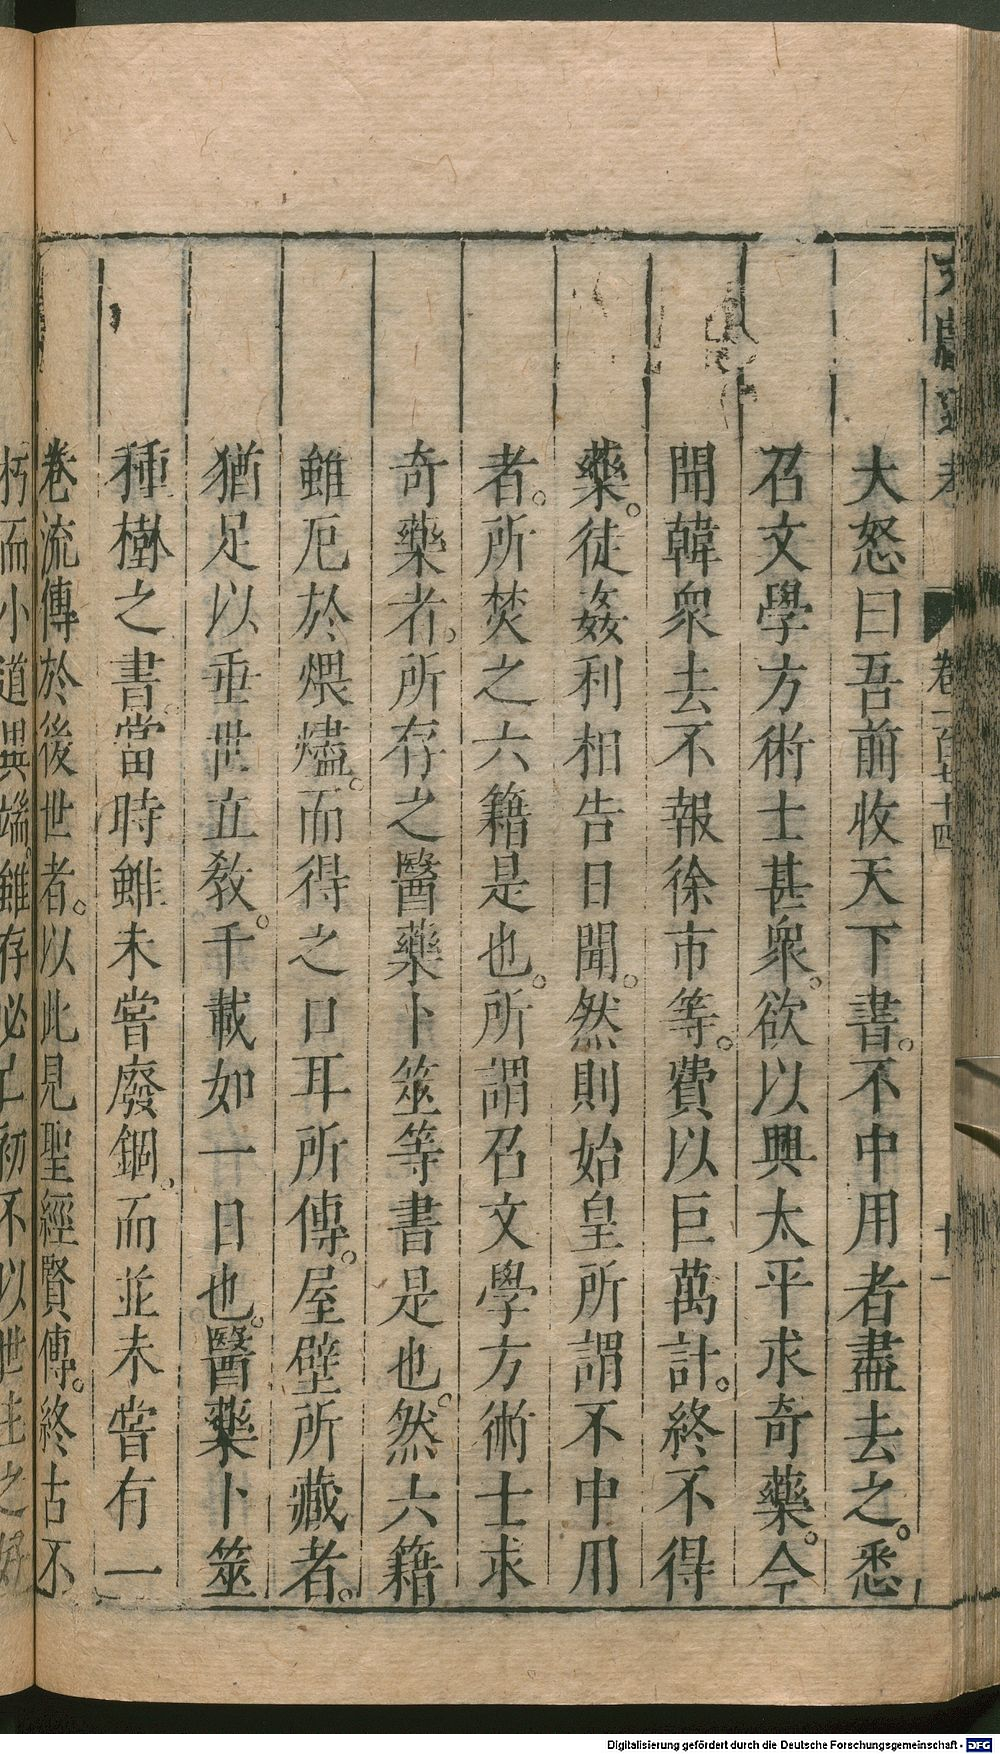 文獻通考 卷一百七十四 十一
大怒曰吾前收天下書。不中用者盡去之。悉
召文學方術士甚衆。欲以興太平求奇藥。今
聞韓衆去不報徐市等。費以巨萬計。終不得
藥。徒姦利相告日聞。然則始皇所謂不中用
者。所焚之六籍是也。所謂召文學方術士求
奇藥者。所存之醫藥卜筮等書是也。然六籍
雖厄於煨燼。而得之口耳所傳。屋壁所藏者。
猶足以垂世立教。千載如一日也。醫藥卜筮
種樹之書。當時雖未嘗廢錮。而並未嘗有一
卷流傳於後世者。以此見聖經賢傳。終古不
朽而小道異端。雖存必亡初不以世主之
Digitalisierung gefördert durch die Deutsche Forschungsgemeinschaft - DFG